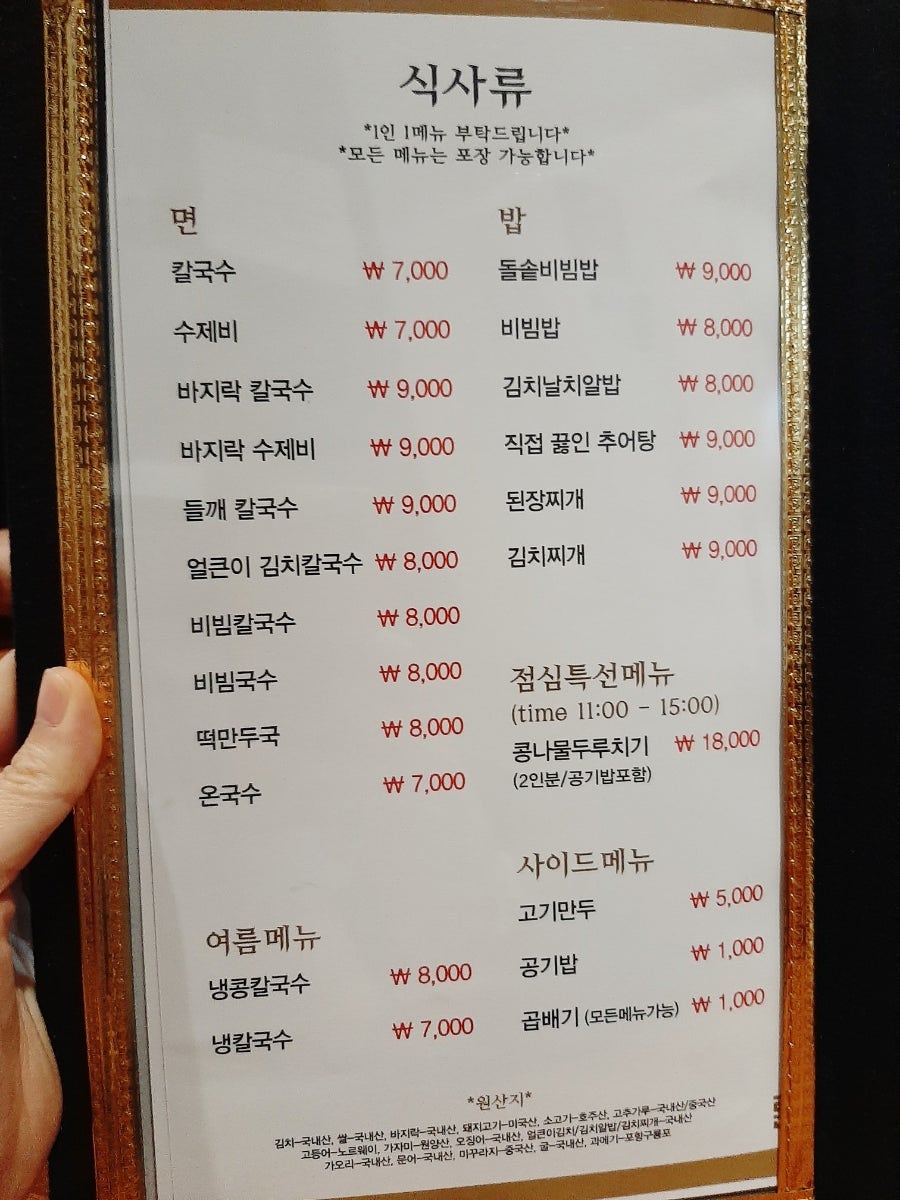 식사류
*1인 1메뉴 부탁드립니다*
*모든 메뉴는 포장 가능합니다*
면
칼국수 ₩ 7,000
수제비 ₩ 7,000
바지락 칼국수 ₩ 9,000
바지락 수제비 ₩ 9,000
들깨 칼국수 ₩ 9,000
얼큰이 김치칼국수 ₩ 8,000
비빔칼국수 ₩ 8,000
비빔국수 ₩ 8,000
떡만두국 ₩ 8,000
온국수 ₩ 7,000
여름메뉴
냉콩칼국수 ₩ 8,000
냉칼국수 ₩ 7,000
밥
돌솥비빔밥 ₩ 9,000
비빔밥 ₩ 8,000
김치날치알밥 ₩ 8,000
직접 끓인 추어탕 ₩ 9,000
된장찌개 ₩ 9,000
김치찌개 ₩ 9,000
점심특선메뉴
(time 11:00 - 15:00)
콩나물두루치기 ₩ 18,000
(2인분/공기밥포함)
사이드메뉴
고기만두 ₩ 5,000
공기밥 ₩ 1,000
곱배기 (모든메뉴가능) ₩ 1,000
*원산지*
김치-국내산, 쌀-국내산, 바지락-국내산, 돼지고기-미국산, 소고기-호주산, 고추가루-국내산/중국산
고등어-노르웨이, 가자미-원양산, 오징어-국내산, 얼큰이김치/김치알밥/김치찌개-국내산
가오리-국내산, 문어-국내산, 미꾸라지-중국산, 굴-국내산, 과메기-포항구룡포